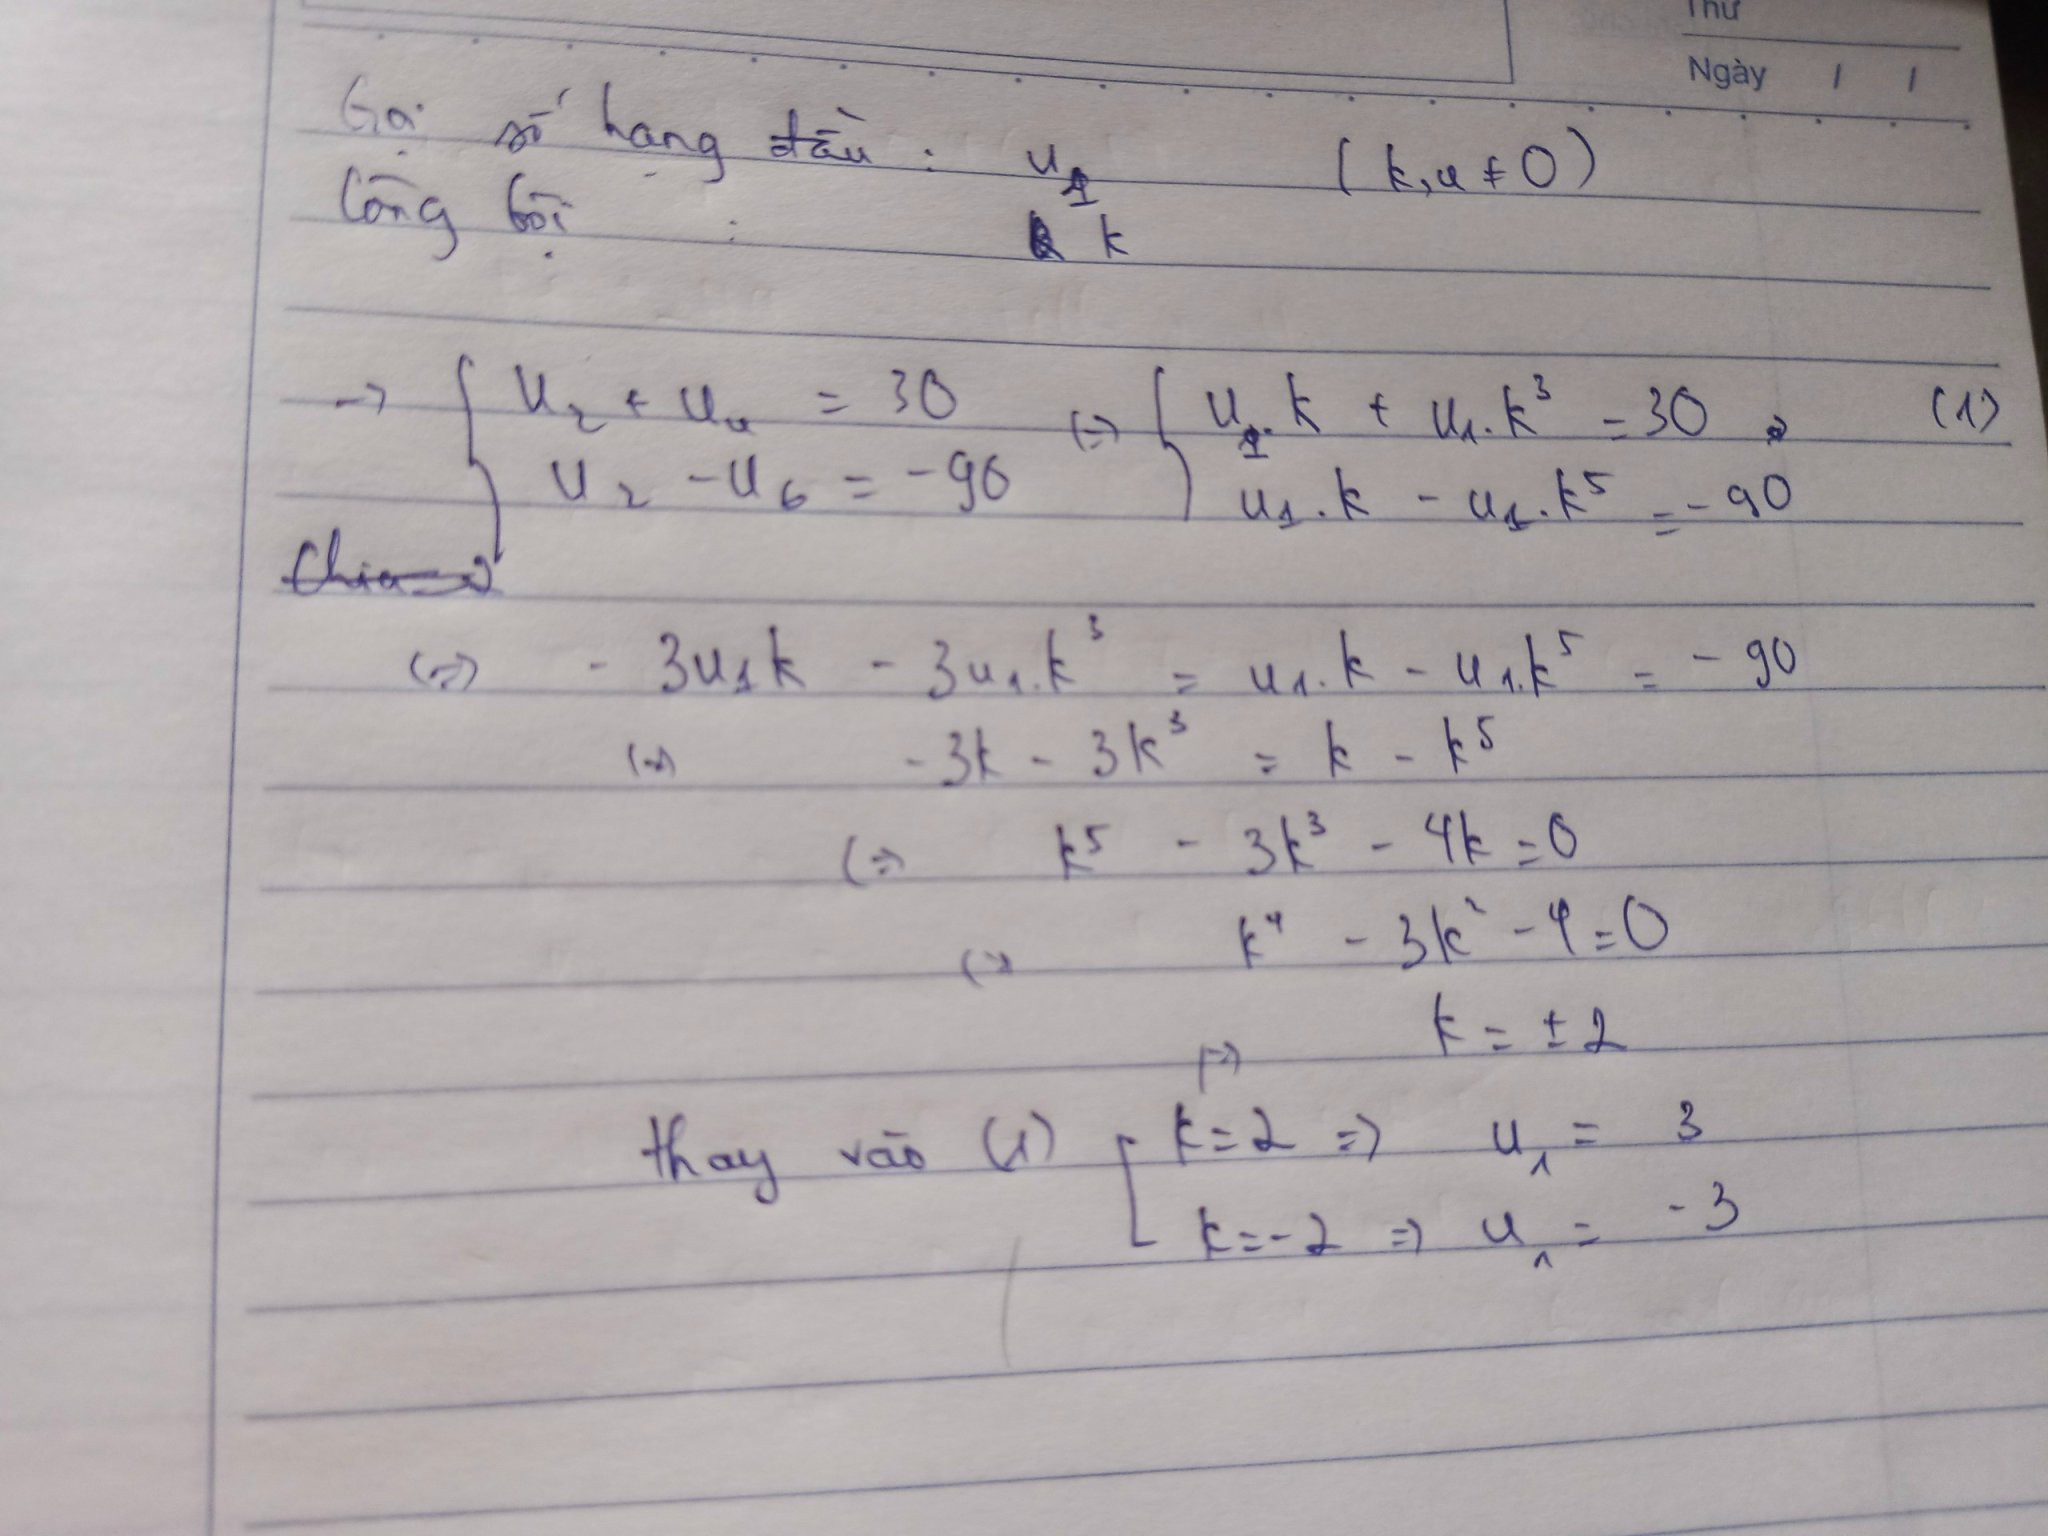 Thứ
Ngày / /
Gọi số hạng đầu : u₁ (k, u ≠ 0)
Công bội : k
→ { u₂ + u₄ = 30 (=) { u₁.k + u₁.k³ = 30 (1)
u₂ - u₆ = -90 u₁.k - u₁.k⁵ = -90
(=) - 3u₁k - 3u₁.k³ = u₁.k - u₁.k⁵ = - 90
(=) -3k - 3k³ = k - k⁵
(=) k⁵ - 3k³ - 4k = 0
(=) k⁴ - 3k² - 4 = 0
(=) k = ± 2
thay vào (1) [ k = 2 => u₁ = 3
k = -2 => u₁ = -3